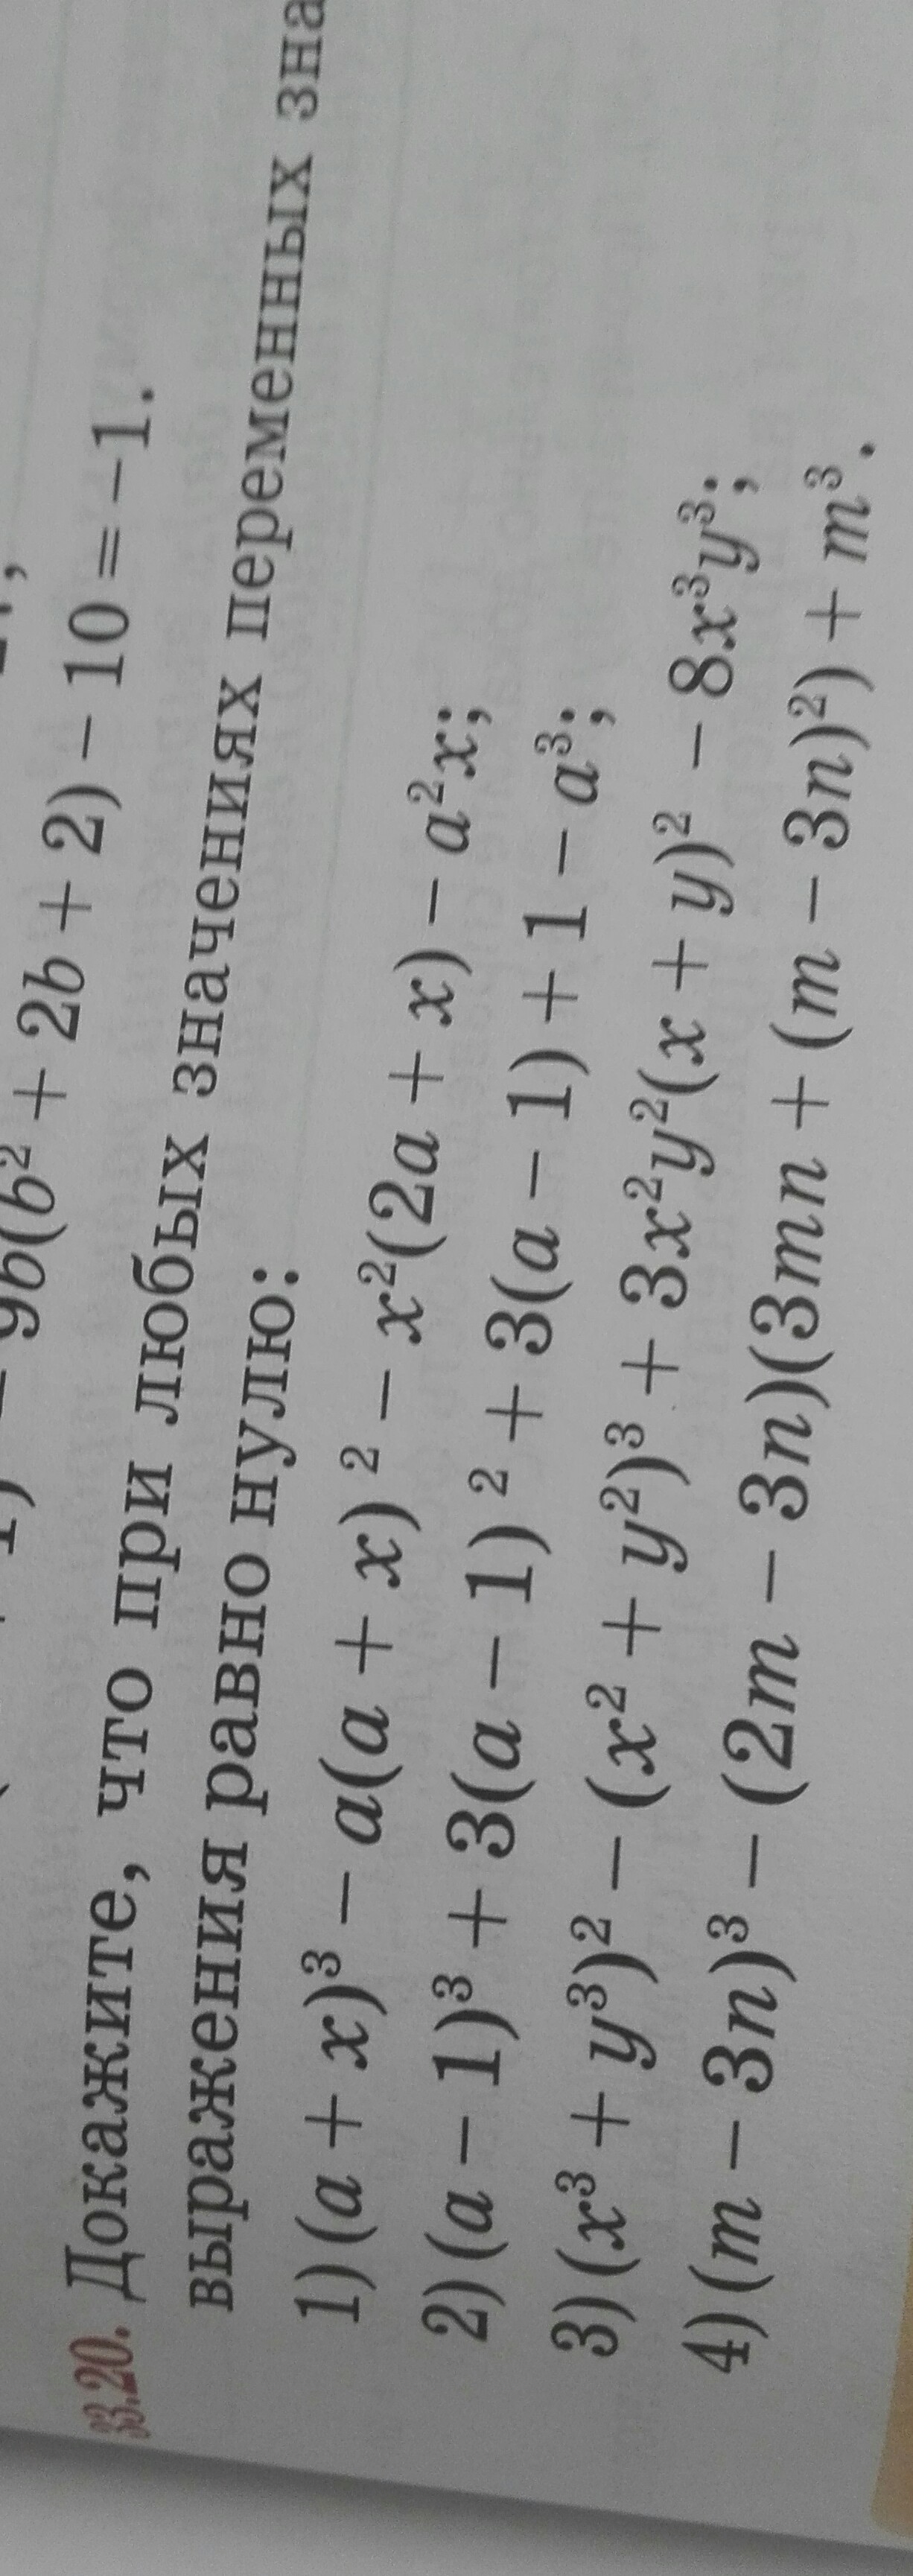 9b(b² + 2b + 2) − 10 = −1.
33.20. Докажите, что при любых значениях переменных
выражения равно нулю:
1) (a + x)³ − a(a + x)² − x²(2a + x) − a²x;
2) (a − 1)³ + 3(a − 1)² + 3(a − 1) + 1 − a³;
3) (x³ + y³)² − (x² + y²)³ + 3x²y²(x + y)² − 8x³y³;
4) (m − 3n)³ − (2m − 3n)(3mn + (m − 3n)²) + m³.